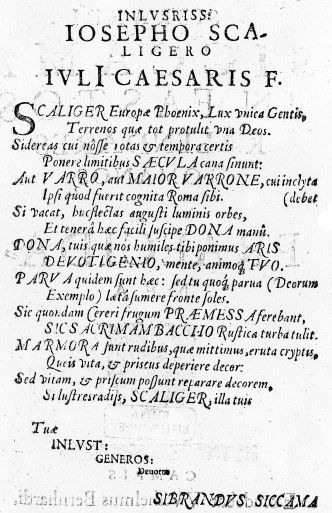 INLVSRISS:
IOSEPHO SCA-
LIGERO
IVLI CAESARIS F.
SCALIGER Europæ Phoenix, Lux vnica Gentis,
Terrenos quæ tot protulit vna Deos.
Sidereas cui nôsse rotas & tempora certis
Ponere limitibus SÆCVLA cana sinunt:
Aut VARRO, aut MAIOR VARRONE, cui inclyta
Ipsi quod fuerit cognita Roma sibi. (debet
Si vacat, huc flectas augusti luminis orbes,
Et tenerâ hæc facili suscipe DONA manû.
DONA, tuis quæ nos humiles tibi ponimus ARIS
DEVOTI GENIO, mente, animoq; TVO.
PARVA quidem sunt hæc: sed tu quoq; parua (Deorum
Exemplo) lætâ sumere fronte soles.
Sic quondam Cereri frugum PRÆMESSA ferebant,
SIC SACRIMAM BACCHO Rustica turba tulit.
MARMORA sunt rudibus, quæ mittimus, eruta cryptis,
Queis vita, & priscus deperiere decor:
Sed vitam, & priscum possunt reparare decorem,
Si lustres radijs, SCALIGER, illa tuis
Tuæ
INLVST:
GENEROS:
Deuotus
SIBRANDVS SICCAMA